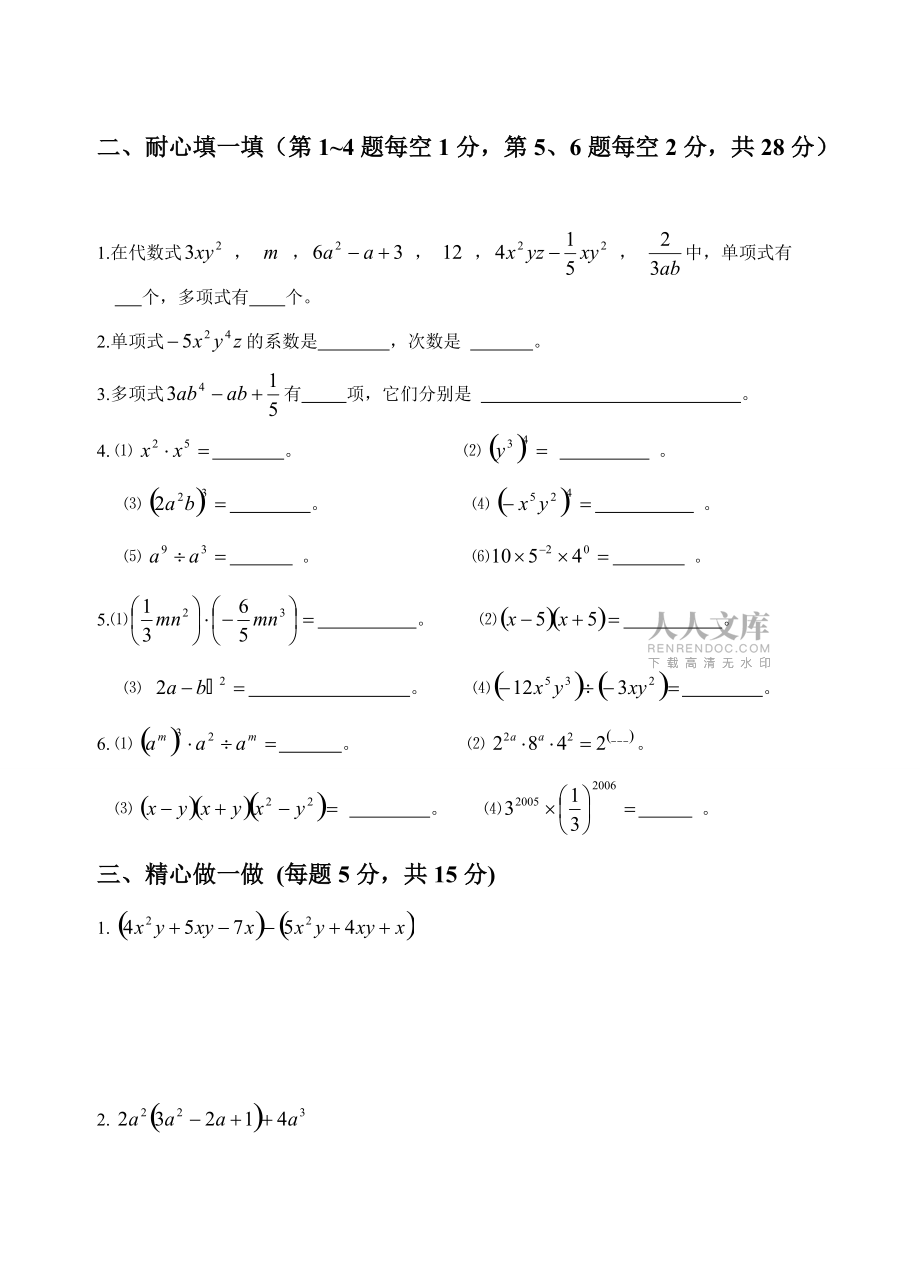 二、耐心填一填（第 1~4 题每空 1 分，第 5、6 题每空 2 分，共 28 分）
1.在代数式 3xy² ， m ，6a² − a + 3 ， 12 ，4x²yz − 1/5 xy² ， 2/3ab 中，单项式有
___个，多项式有____个。
2.单项式 − 5x²y⁴z 的系数是________，次数是 _______。
3.多项式 3ab⁴ − ab + 1/5 有_____项，它们分别是 _____________________________。
4. ⑴ x² · x⁵ = ________。 ⑵ (y³)⁴ = __________ 。
⑶ (2a²b)³ = _________。 ⑷ (− x⁵y²)⁴ = ___________ 。
⑸ a⁹ ÷ a³ = _______ 。 ⑹10 × 5⁻² × 4⁰ = ________ 。
5.⑴(1/3 mn²) · (− 6/5 mn³) = ___________。 ⑵(x − 5)(x + 5) = ___________。
⑶ 2a − b² = __________________。 ⑷(−12x⁵y³) ÷ (− 3xy²) = _________。
6. ⑴ (aᵐ)³ · a² ÷ aᵐ = _______。 ⑵ 2²ᵃ · 8ᵃ · 4² = 2⁽___⁾。
⑶ (x − y)(x + y)(x² − y²) = _________。 ⑷3²⁰⁰⁵ × (1/3)²⁰⁰⁶ = ______ 。
人人文库
RENRENDOC.COM
下载高清无水印
三、精心做一做 (每题 5 分，共 15 分)
1. (4x²y + 5xy − 7x) − (5x²y + 4xy + x)
2. 2a²(3a² − 2a + 1) + 4a³